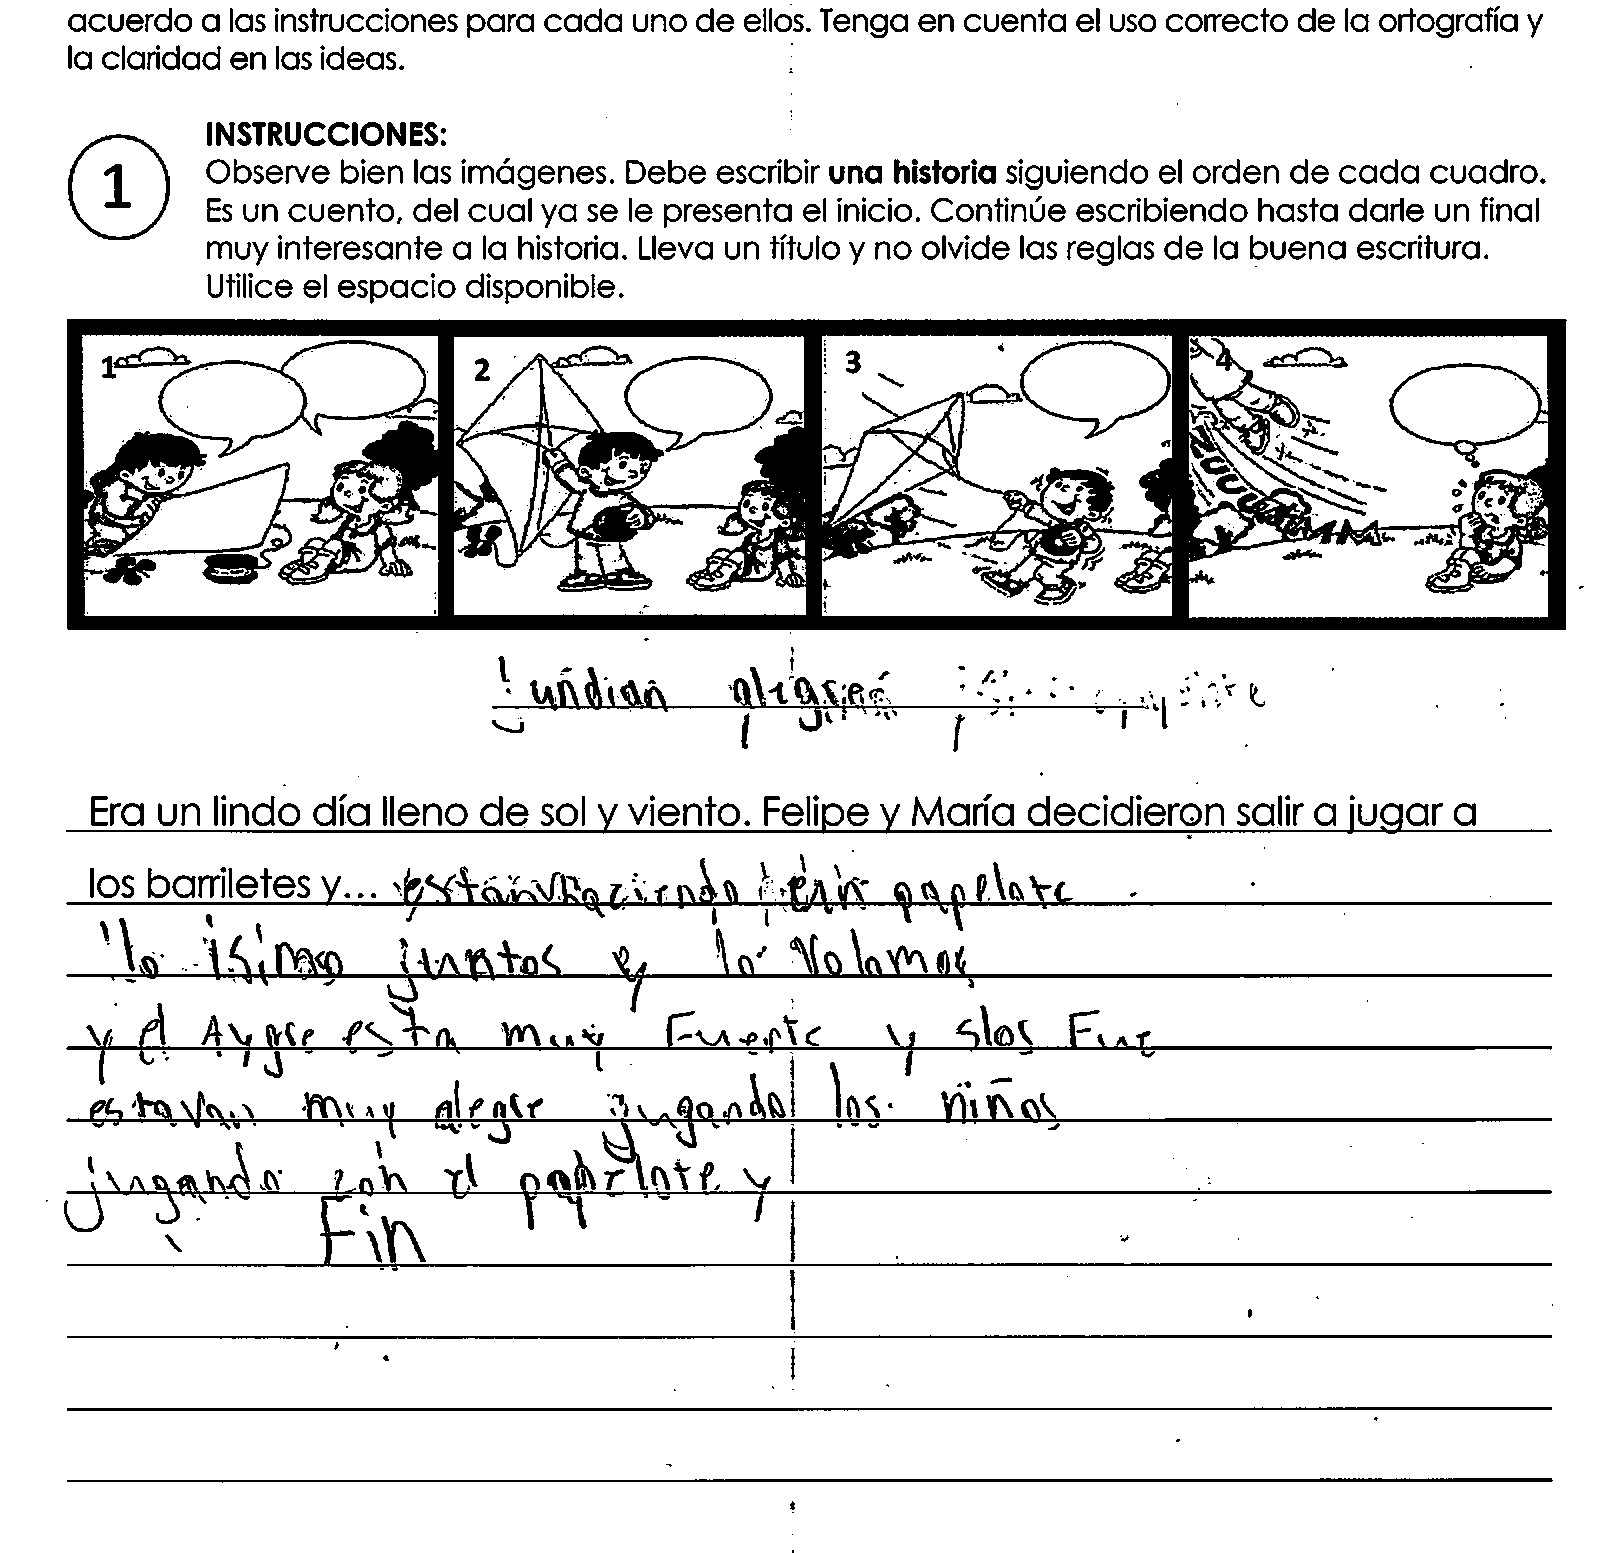 acuerdo a las instrucciones para cada uno de ellos. Tenga en cuenta el uso correcto de la ortografía y
la claridad en las ideas.
INSTRUCCIONES:
1
Observe bien las imágenes. Debe escribir una historia siguiendo el orden de cada cuadro.
Es un cuento, del cual ya se le presenta el inicio. Continúe escribiendo hasta darle un final
muy interesante a la historia. Lleva un título y no olvide las reglas de la buena escritura.
Utilice el espacio disponible.
1 2 3 4
undian alegres
Era un lindo día lleno de sol y viento. Felipe y María decidieron salir a jugar a
los barriletes y... papelote
lo isimo juntos y lo Volamos
y el Aygre esta muy Fuerte y slos Fue
estavan muy alegre jugando los niños
jugando con el papelote y
Fin